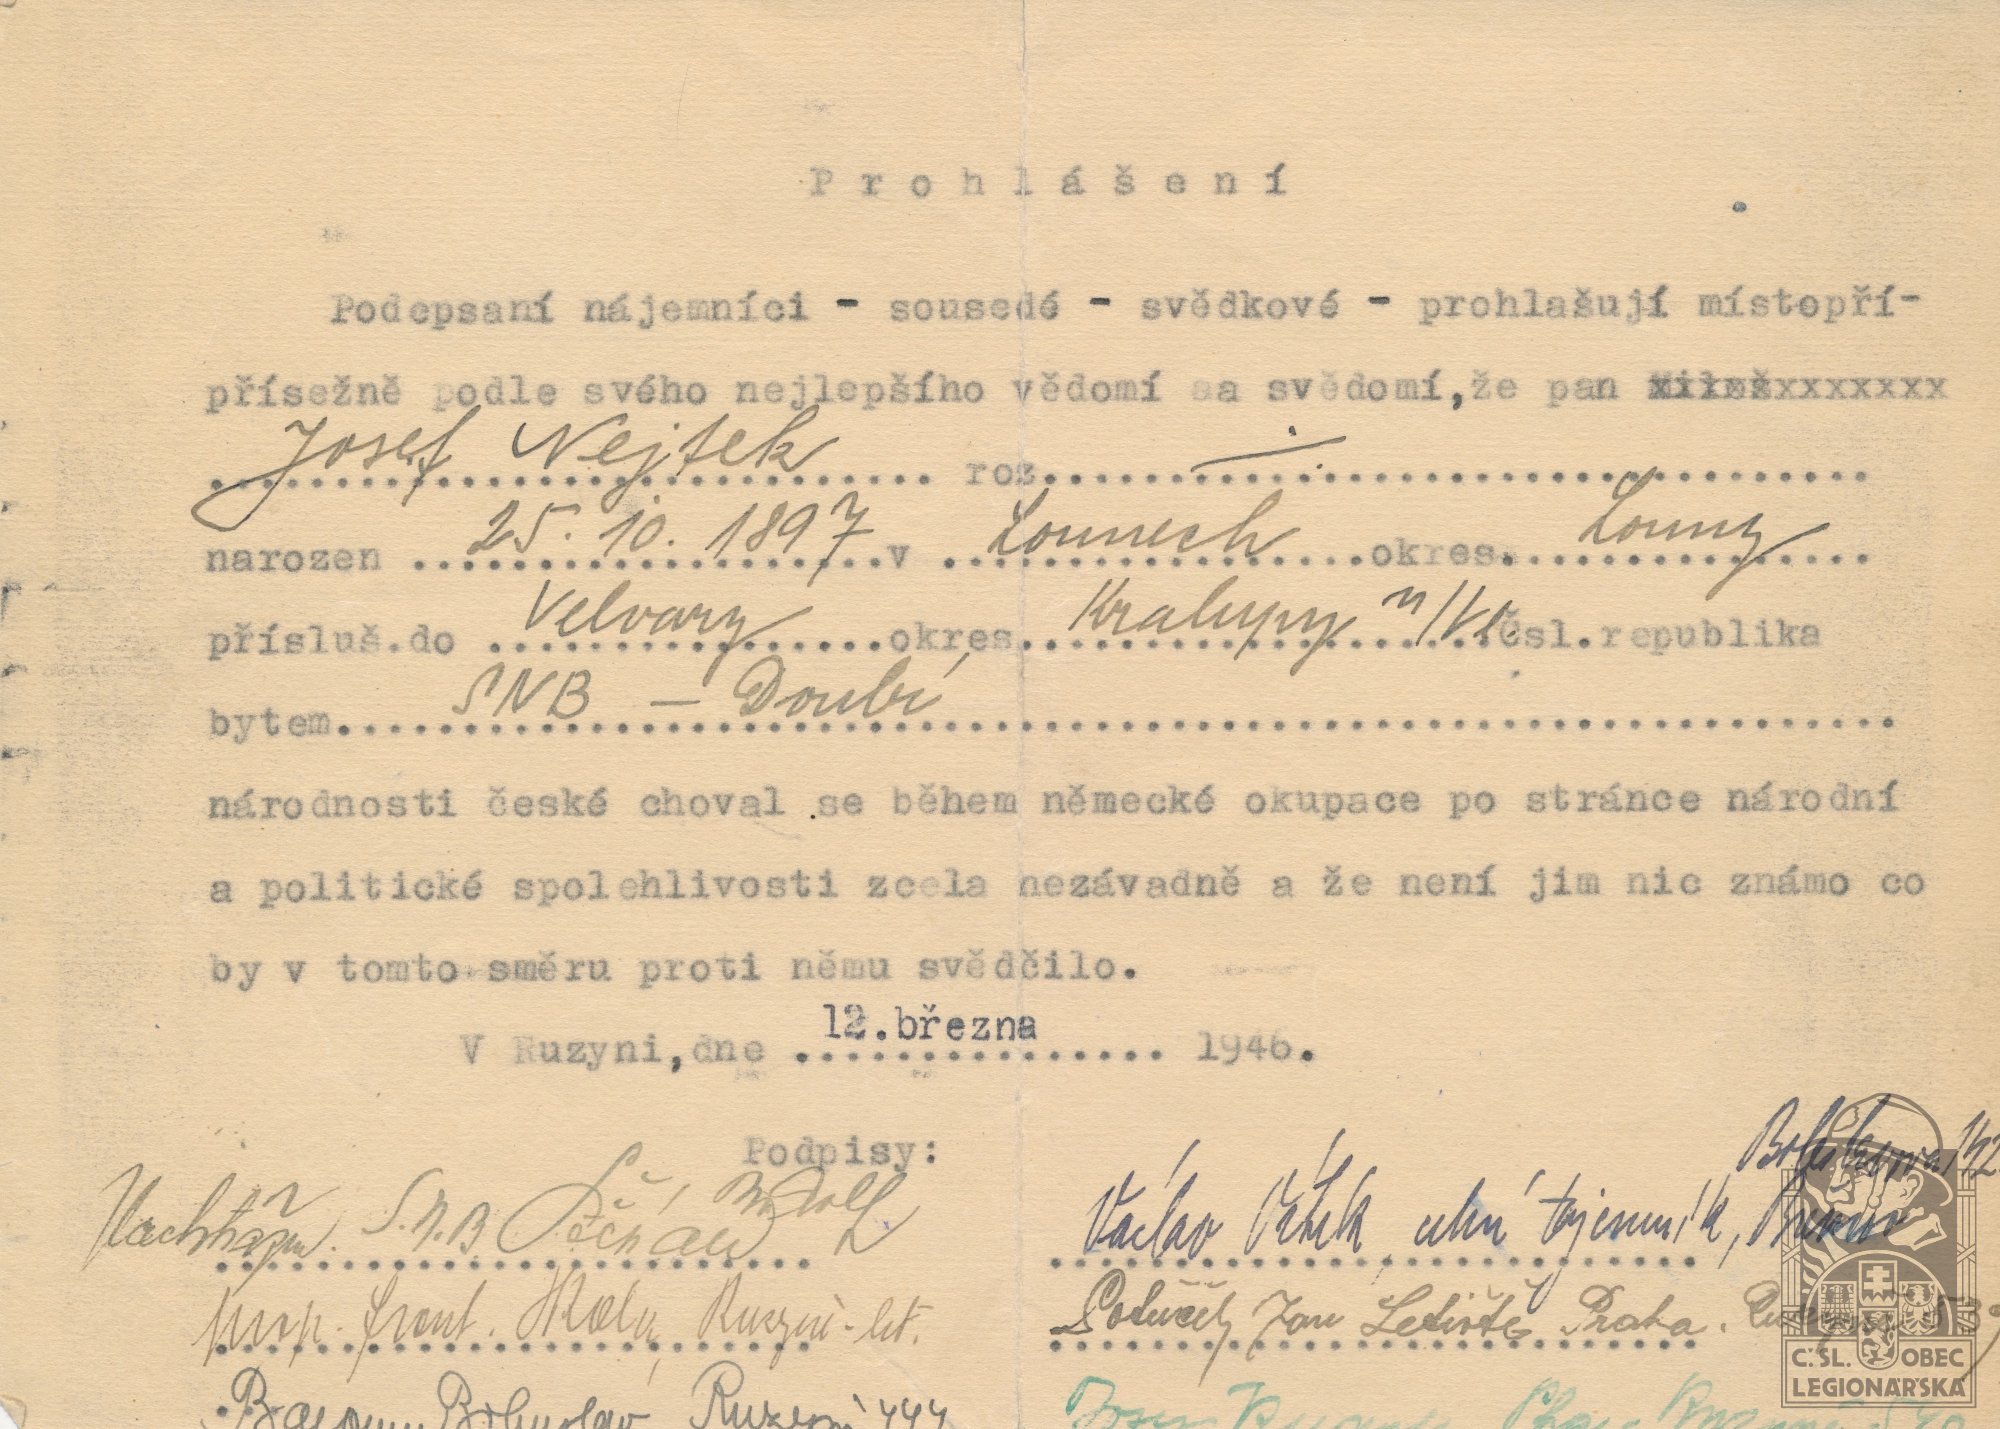 Prohlášení
Podepsaní nájemníci - sousedé - svědkové - prohlašují místopří-
přísežně podle svého nejlepšího vědomí a svědomí, že pan
Josef Nejtek roz. —
narozen 25. 10. 1897 v Lounech okres. Louny
přísluš.do Velvary okres Kralupy n/Vl. Čsl.republika
bytem SNB — Doubí
národnosti české choval se během německé okupace po stránce národní
a politické spolehlivosti zcela nezávadně a že není jim nic známo co
by v tomto směru proti němu svědčilo.
V Ruzyni, dne 12.března 1946.
Podpisy:
S.N.B
Václav tajemník,
Ruzyně - let.
Jan Letiště Praha.
Bohuslav Ruzyně 444
Josef
Č.SL. OBEC
LEGIONÁŘSKÁ